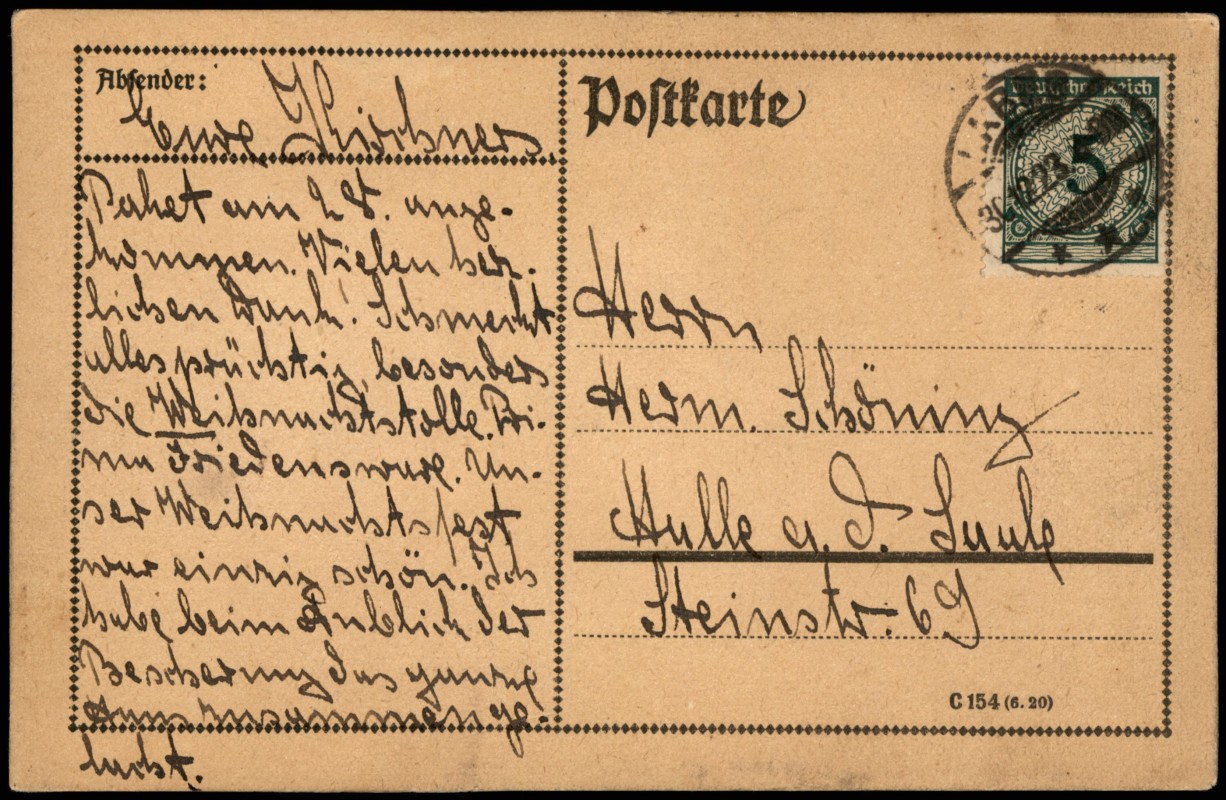 Absender:
Eure Kirschners.
Paket am 28. ange-
kommen. Vielen herz-
lichen Dank! Schmeckt
alles prächtig, besonders
die Weihnachtstolle. Pri-
ma Friedensware. Un-
ser Weihnachtsfest
war einzig schön. Ich
habe beim Anblick der
Bescherung das ganze
Haus zusammen ge-
lacht.
Postkarte
Deutsches Reich
5
Herrn
Herm. Schöning
Halle a. d. Saale
Steinstr. 69
C 154 (6. 20)